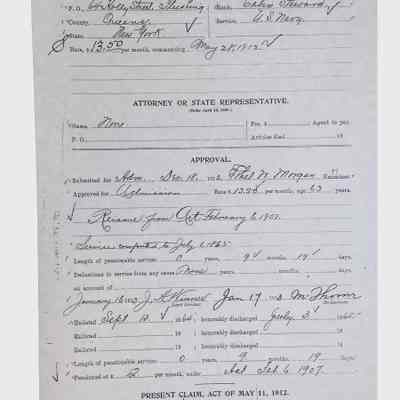 P. O., 64 Holly Street, Flushing Rank, Cabin Steward
County, Queens Service, U. S. Navy
State, New York
Rate, $ 13.50 per month, commencing May 28, 1912
ATTORNEY OR STATE REPRESENTATIVE.
Name, None Fee $ Agent to pay.
P. O. Articles filed 19
APPROVAL.
Submitted for Adm. Dec. 18, 1912, Ethel W. Morgan, Examiner.
Approved for Admission $ 13.50 per month, age 63 years.
from Act February 6, 1907.
Service computed to July 6, 1865
Length of pensionable service 0 years, 9 months, 19 days.
Deductions in service from any cause None years, months, days.
on account of
January 16, 1913, Jan 17, 1913, M
Enlisted Sept 12, 1864, honorably discharged July 3, 1865
Enlisted 18 honorably discharged 18
Enlisted 18 honorably discharged 18
Length of pensionable service 0 years, 9 months, 19 days.
Pensioned at $ 12 per month, under Act Feb. 6 1907.
PRESENT CLAIM, ACT OF MAY 11, 1912.